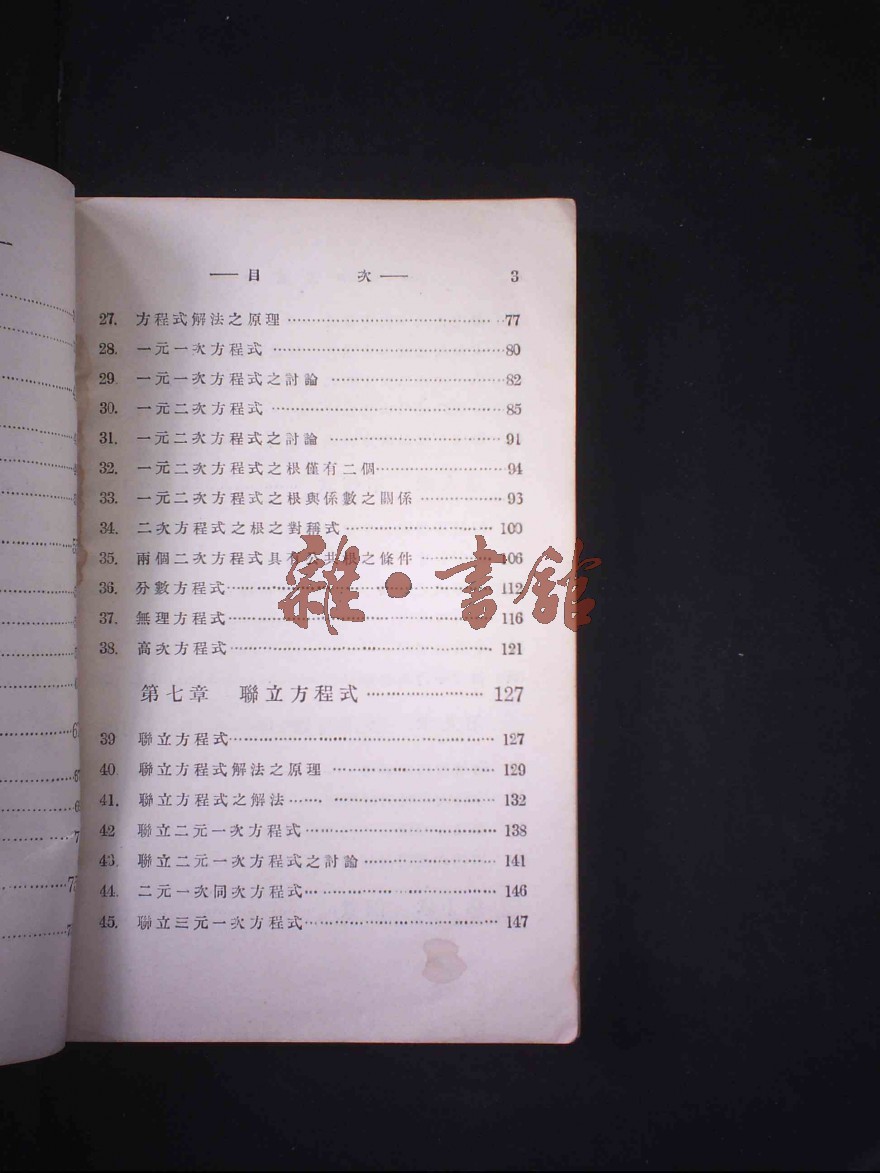 ——目 次—— 3
27. 方程式解法之原理 ……………………… 77
28. 一元一次方程式 ……………………… 80
29. 一元一次方程式之討論 ……………………… 82
30. 一元二次方程式 ……………………… 85
31. 一元二次方程式之討論 ……………………… 91
32. 一元二次方程式之根僅有二個……………… 94
33. 一元二次方程式之根與係數之關係 ………… 95
34. 二次方程式之根之對稱式……………… 100
35. 兩個二次方程式具有公共根之條件 ………… 106
36. 分數方程式……………………… 112
37. 無理方程式……………………… 116
38. 高次方程式……………………… 121
第七章 聯立方程式 ………………… 127
39 聯立方程式……………………… 127
40. 聯立方程式解法之原理 ……………… 129
41. 聯立方程式之解法…………………… 132
42 聯立二元一次方程式 ………………… 138
43. 聯立二元一次方程式之討論 …………… 141
44. 二元一次同次方程式………………… 146
45. 聯立三元一次方程式………………… 147
雜·書館